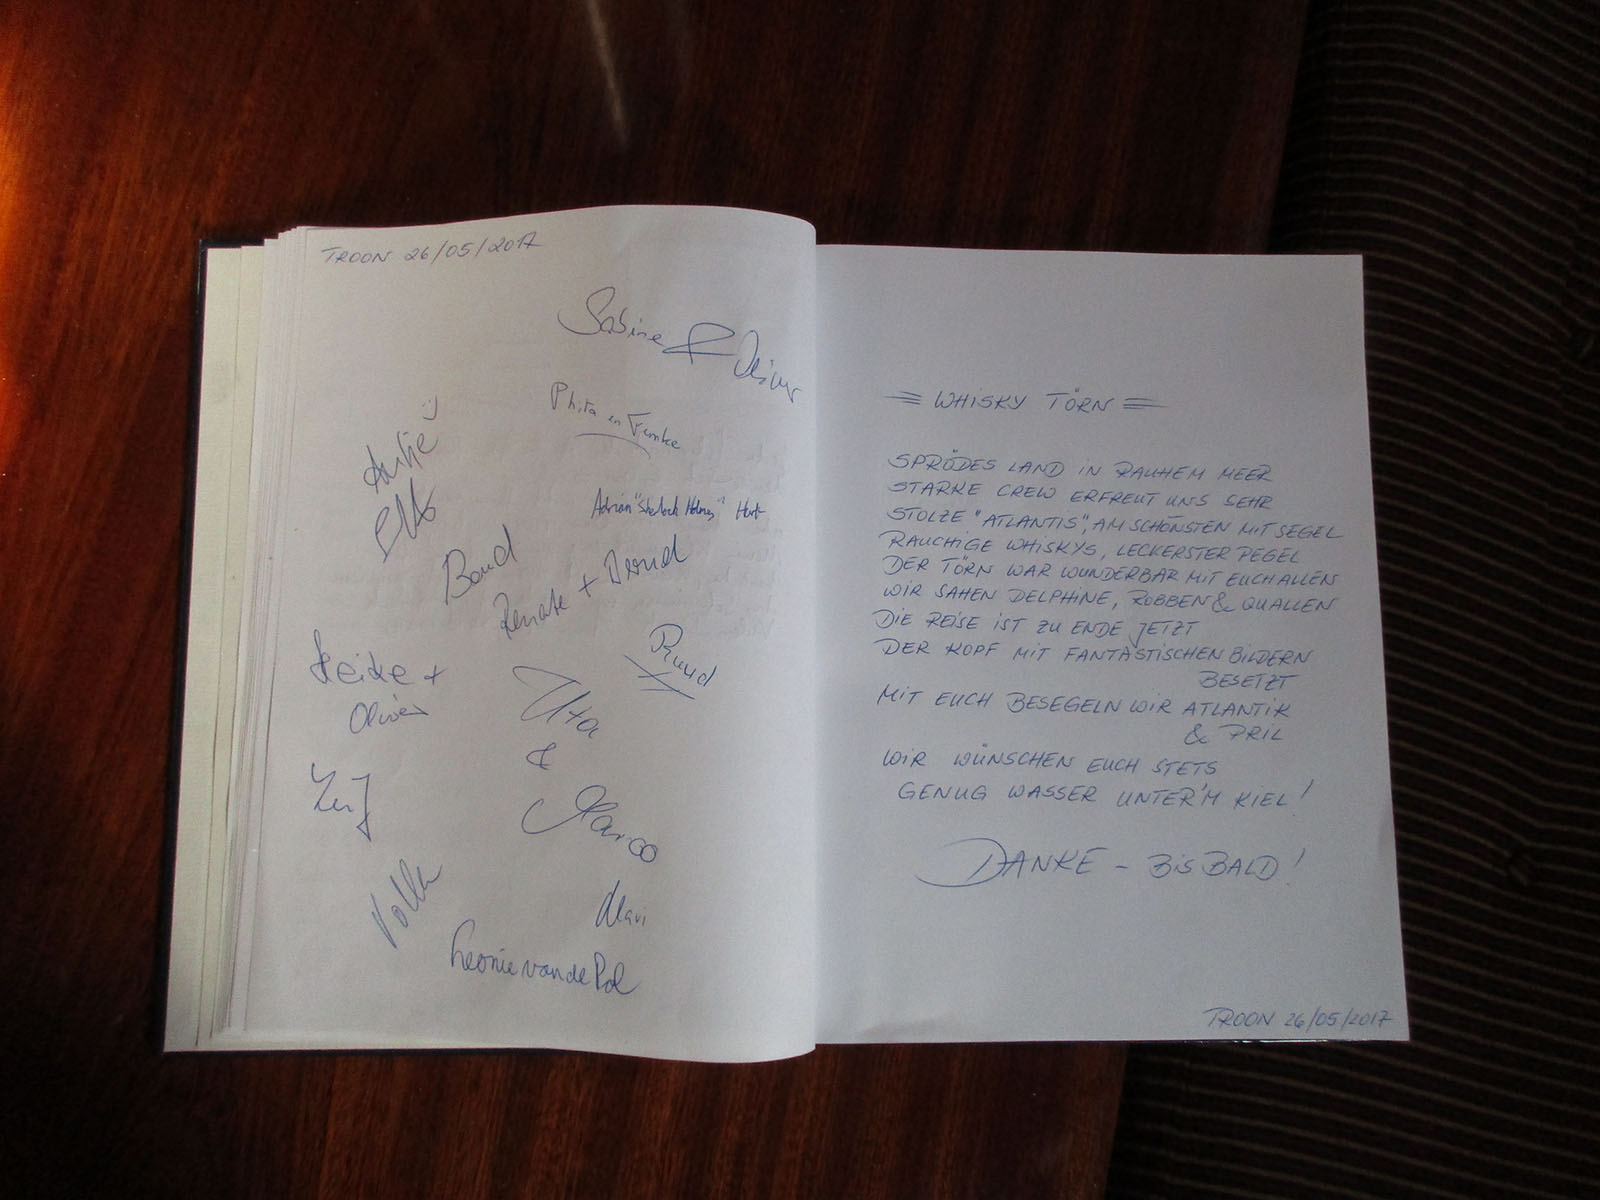 TROON 26/05/2017
Sabine & Oliver
Phita en Femke
Antje
Adrian "Sherlock Holmes" Hart
Bernd
Renate + Bernd
Heike +
Oliver
Ruud
Uta
&
Marco
Volker
Leonie van de Pol
WHISKY TÖRN
SPRÖDES LAND IN RAUHEM MEER
STARKE CREW ERFREUT UNS SEHR
STOLZE "ATLANTIS", AM SCHÖNSTEN MIT SEGEL
RAUCHIGE WHISKYS, LECKERSTER PEGEL
DER TÖRN WAR WUNDERBAR MIT EUCH ALLEN
WIR SAHEN DELPHINE, ROBBEN & QUALLEN
DIE REISE IST ZU ENDE JETZT
DER KOPF MIT FANTASTISCHEN BILDERN
BESETZT
MIT EUCH BESEGELN WIR ATLANTIK
& PRIL
WIR WÜNSCHEN EUCH STETS
GENUG WASSER UNTER'M KIEL!
DANKE – BIS BALD!
TROON 26/05/2017